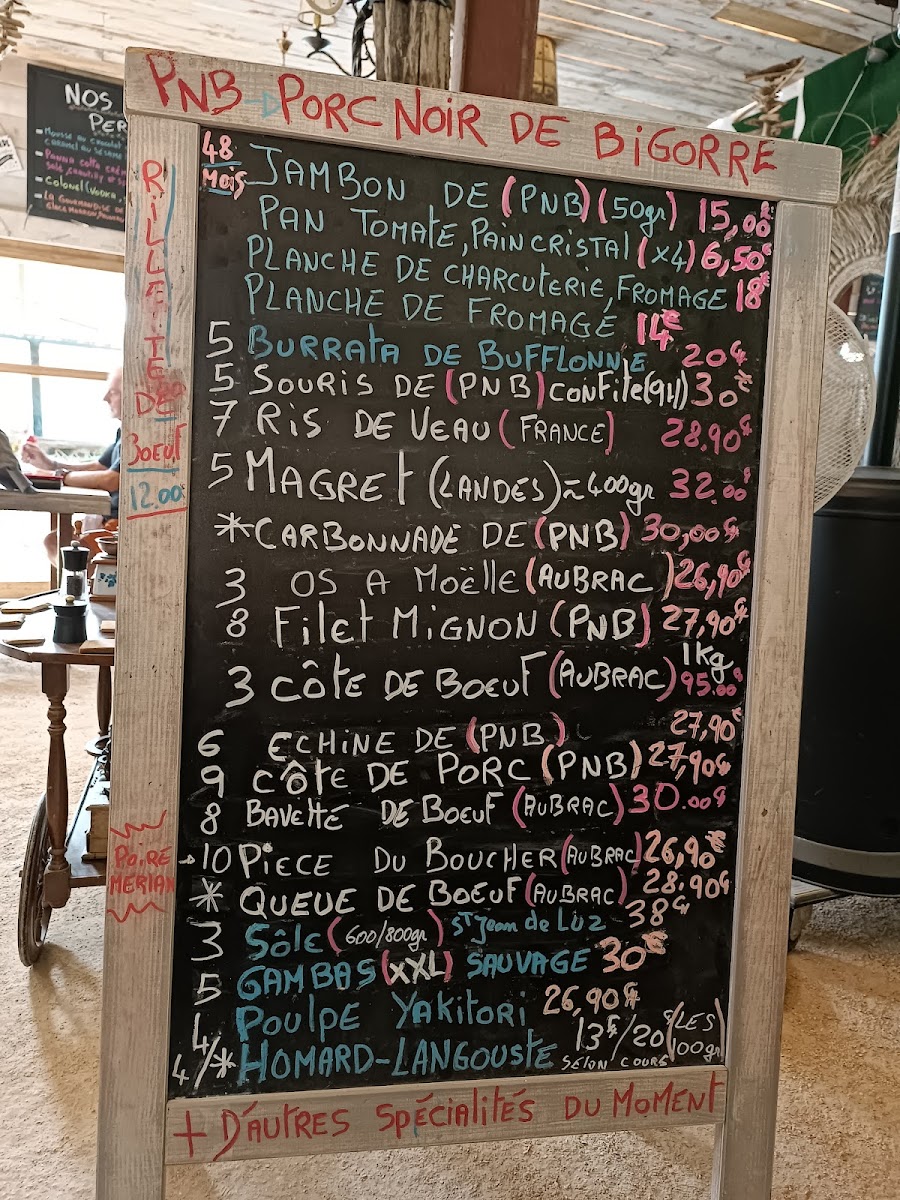 PNB → PORC NOIR DE BIGORRE
48 MOIS JAMBON DE (PNB) (50gr) 15,00€
PAN TOMATE, PAIN CRISTAL (x4) 6,50€
PLANCHE DE CHARCUTERIE, FROMAGE 18€
PLANCHE DE FROMAGE 14€
5 BURRATA DE BUFFLONNE 20€
5 SOURIS DE (PNB) CONFITE (9H) 30€
7 RIS DE VEAU (FRANCE) 28,90€
5 MAGRET (LANDES) ≈ 400gr 32.00€
* CARBONNADE DE (PNB) 30,00€
3 OS A MOËLLE (AUBRAC) 26,90€
8 FILET MIGNON (PNB) 27,90€
3 CÔTE DE BOEUF (AUBRAC) 1Kg 95.00€
6 ECHINE DE (PNB) 27,90€
9 CÔTE DE PORC (PNB) 27,90€
8 BAVETTE DE BOEUF (AUBRAC) 30.00€
10 PIECE DU BOUCHER (AUBRAC) 26,90€
* QUEUE DE BOEUF (AUBRAC) 28.90€
3 SÔLE (600/800gr) ST Jean de LUZ 38€
5 GAMBAS (XXL) SAUVAGE 30€
4 POULPE YAKITORI 26,90€
4/* HOMARD-LANGOUSTE 13€/20€ (LES 100gr)
SELON COURS
+ D'AUTRES SPÉCIALITÉS DU MOMENT
RILLETTE
DE
BOEUF
12.00€
POIRE
MERIAN
NOS
PER
Mousse au chocolat
caramel au sésame
Panna cotta
Colonel (Vodka
La Gourmandise de